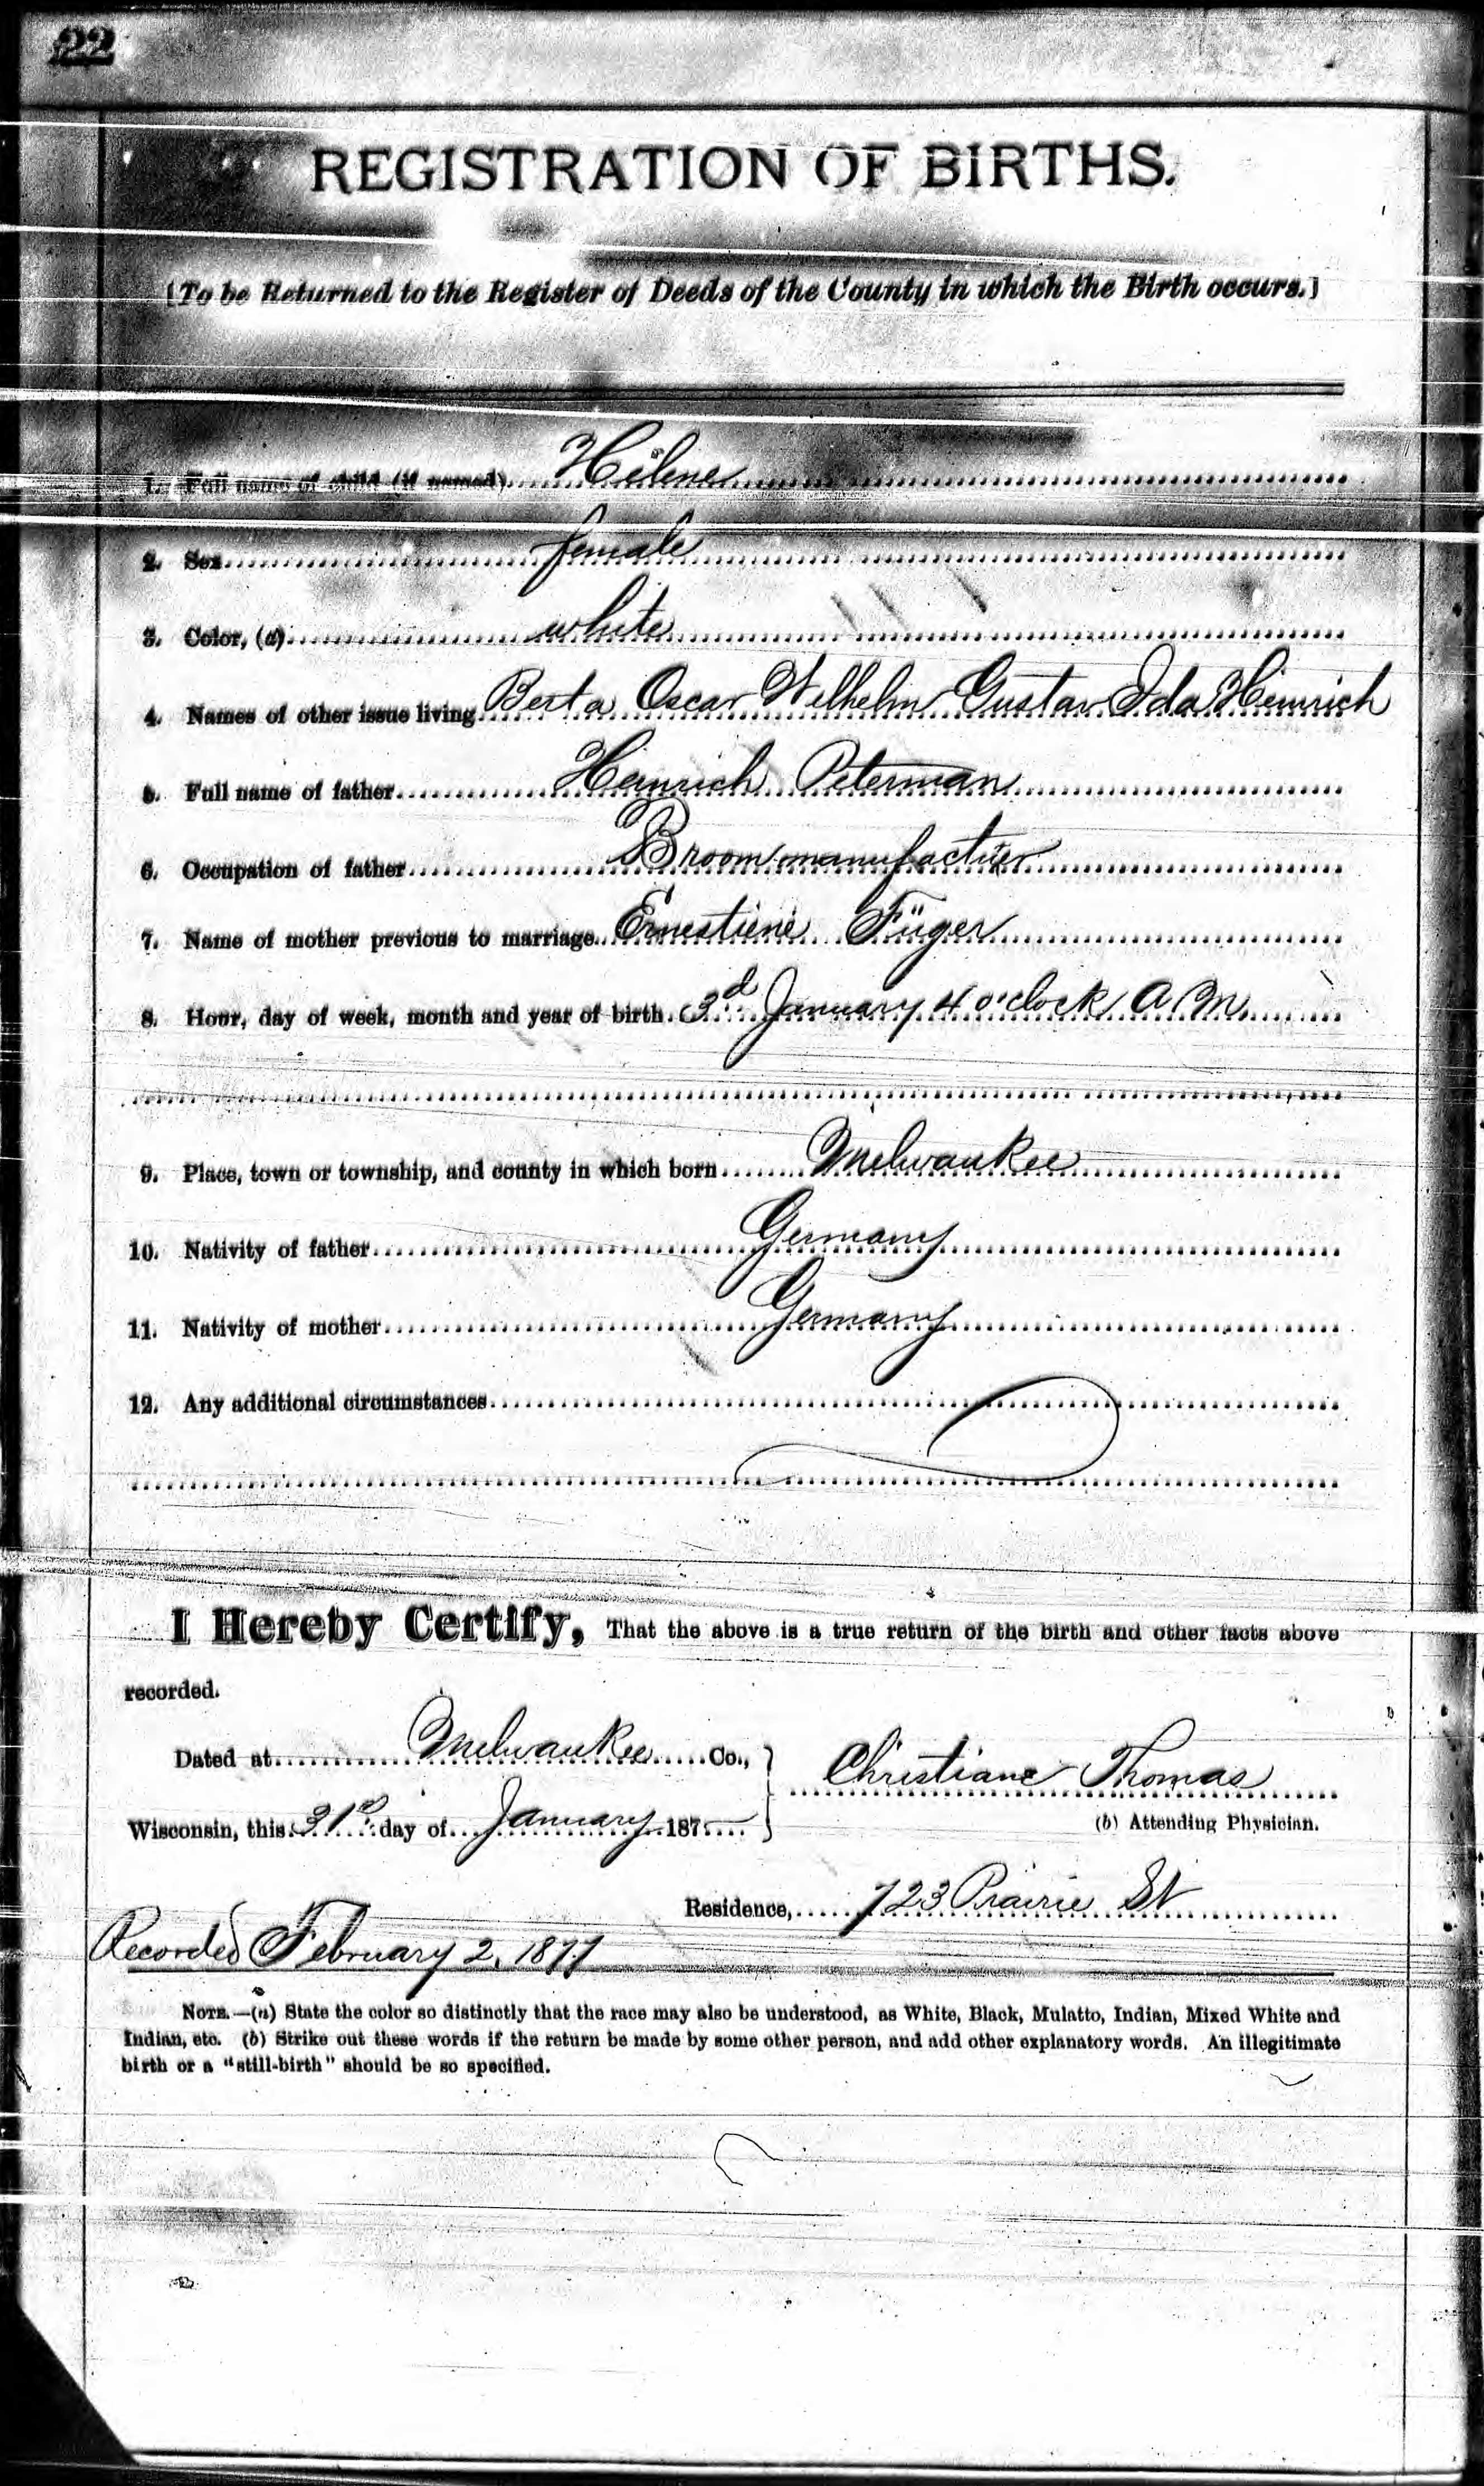 22
REGISTRATION OF BIRTHS.
[To be Returned to the Register of Deeds of the County in which the Birth occurs.]
1. Full name of child (if named) Helene
2. Sex female
3. Color, (a) white
4. Names of other issue living Berta Oscar Wilhelm Gustav Ida Heinrich
5. Full name of father Heinrich Peterman
6. Occupation of father Broom manufactuer
7. Name of mother previous to marriage Ernestiene Füger
8. Hour, day of week, month and year of birth 3d January 4 o'clock A M.
9. Place, town or township, and county in which born Milwaukee
10. Nativity of father Germany
11. Nativity of mother Germany
12. Any additional circumstances
I Hereby Certify, That the above is a true return of the birth and other facts above
recorded.
Dated at Milwaukee Co.,
Christiane Thomas
Wisconsin, this 31st day of January 187
(b) Attending Physician.
Residence, 723 Prairie St
Recorded February 2, 1877
NOTE.—(a) State the color so distinctly that the race may also be understood, as White, Black, Mulatto, Indian, Mixed White and
Indian, etc. (b) Strike out these words if the return be made by some other person, and add other explanatory words. An illegitimate
birth or a "still-birth" should be so specified.